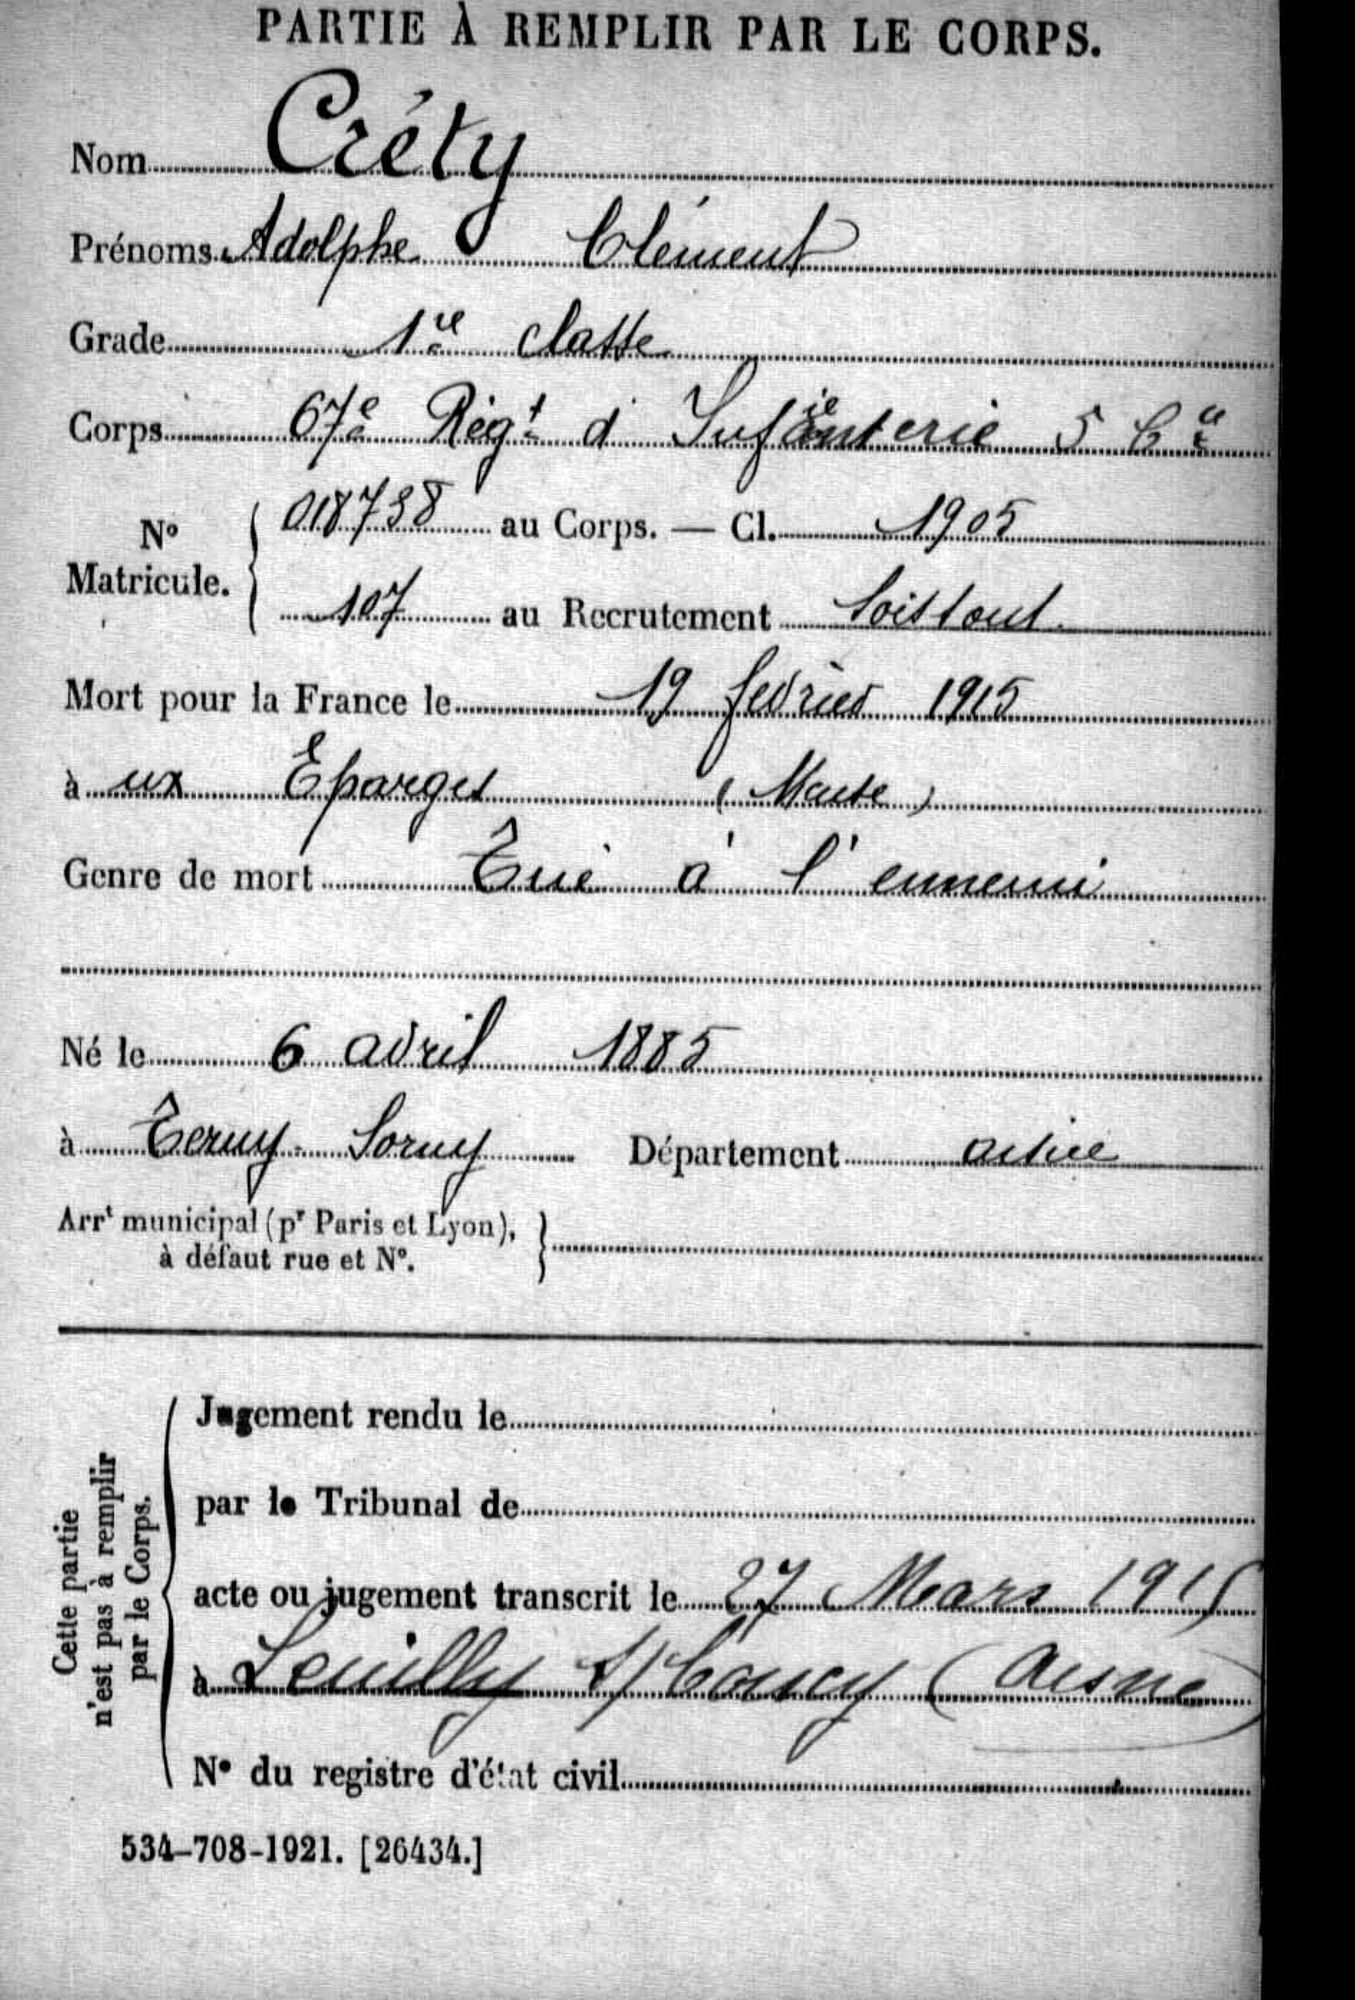 PARTIE À REMPLIR PAR LE CORPS.
Nom Créty
Prénoms Adolphe Clément
Grade 1re classe
Corps 67e Régt d'Infanterie 5 Cie
No Matricule. { 018738 au Corps. — Cl. 1905
107 au Recrutement Soissons
Mort pour la France le 19 février 1915
à ux Eparges (Meuse)
Genre de mort Tué à l'ennemi
Né le 6 avril 1885
à Terny-Sorny Département Aisne
Arrt municipal (pr Paris et Lyon),
à défaut rue et No. }
Cette partie n'est pas à remplir par le Corps.
Jugement rendu le
par le Tribunal de
acte ou jugement transcrit le 27 Mars 1915
à Leuilly s/ Coucy (Aisne)
No du registre d'état civil
534-708-1921. [26434.]